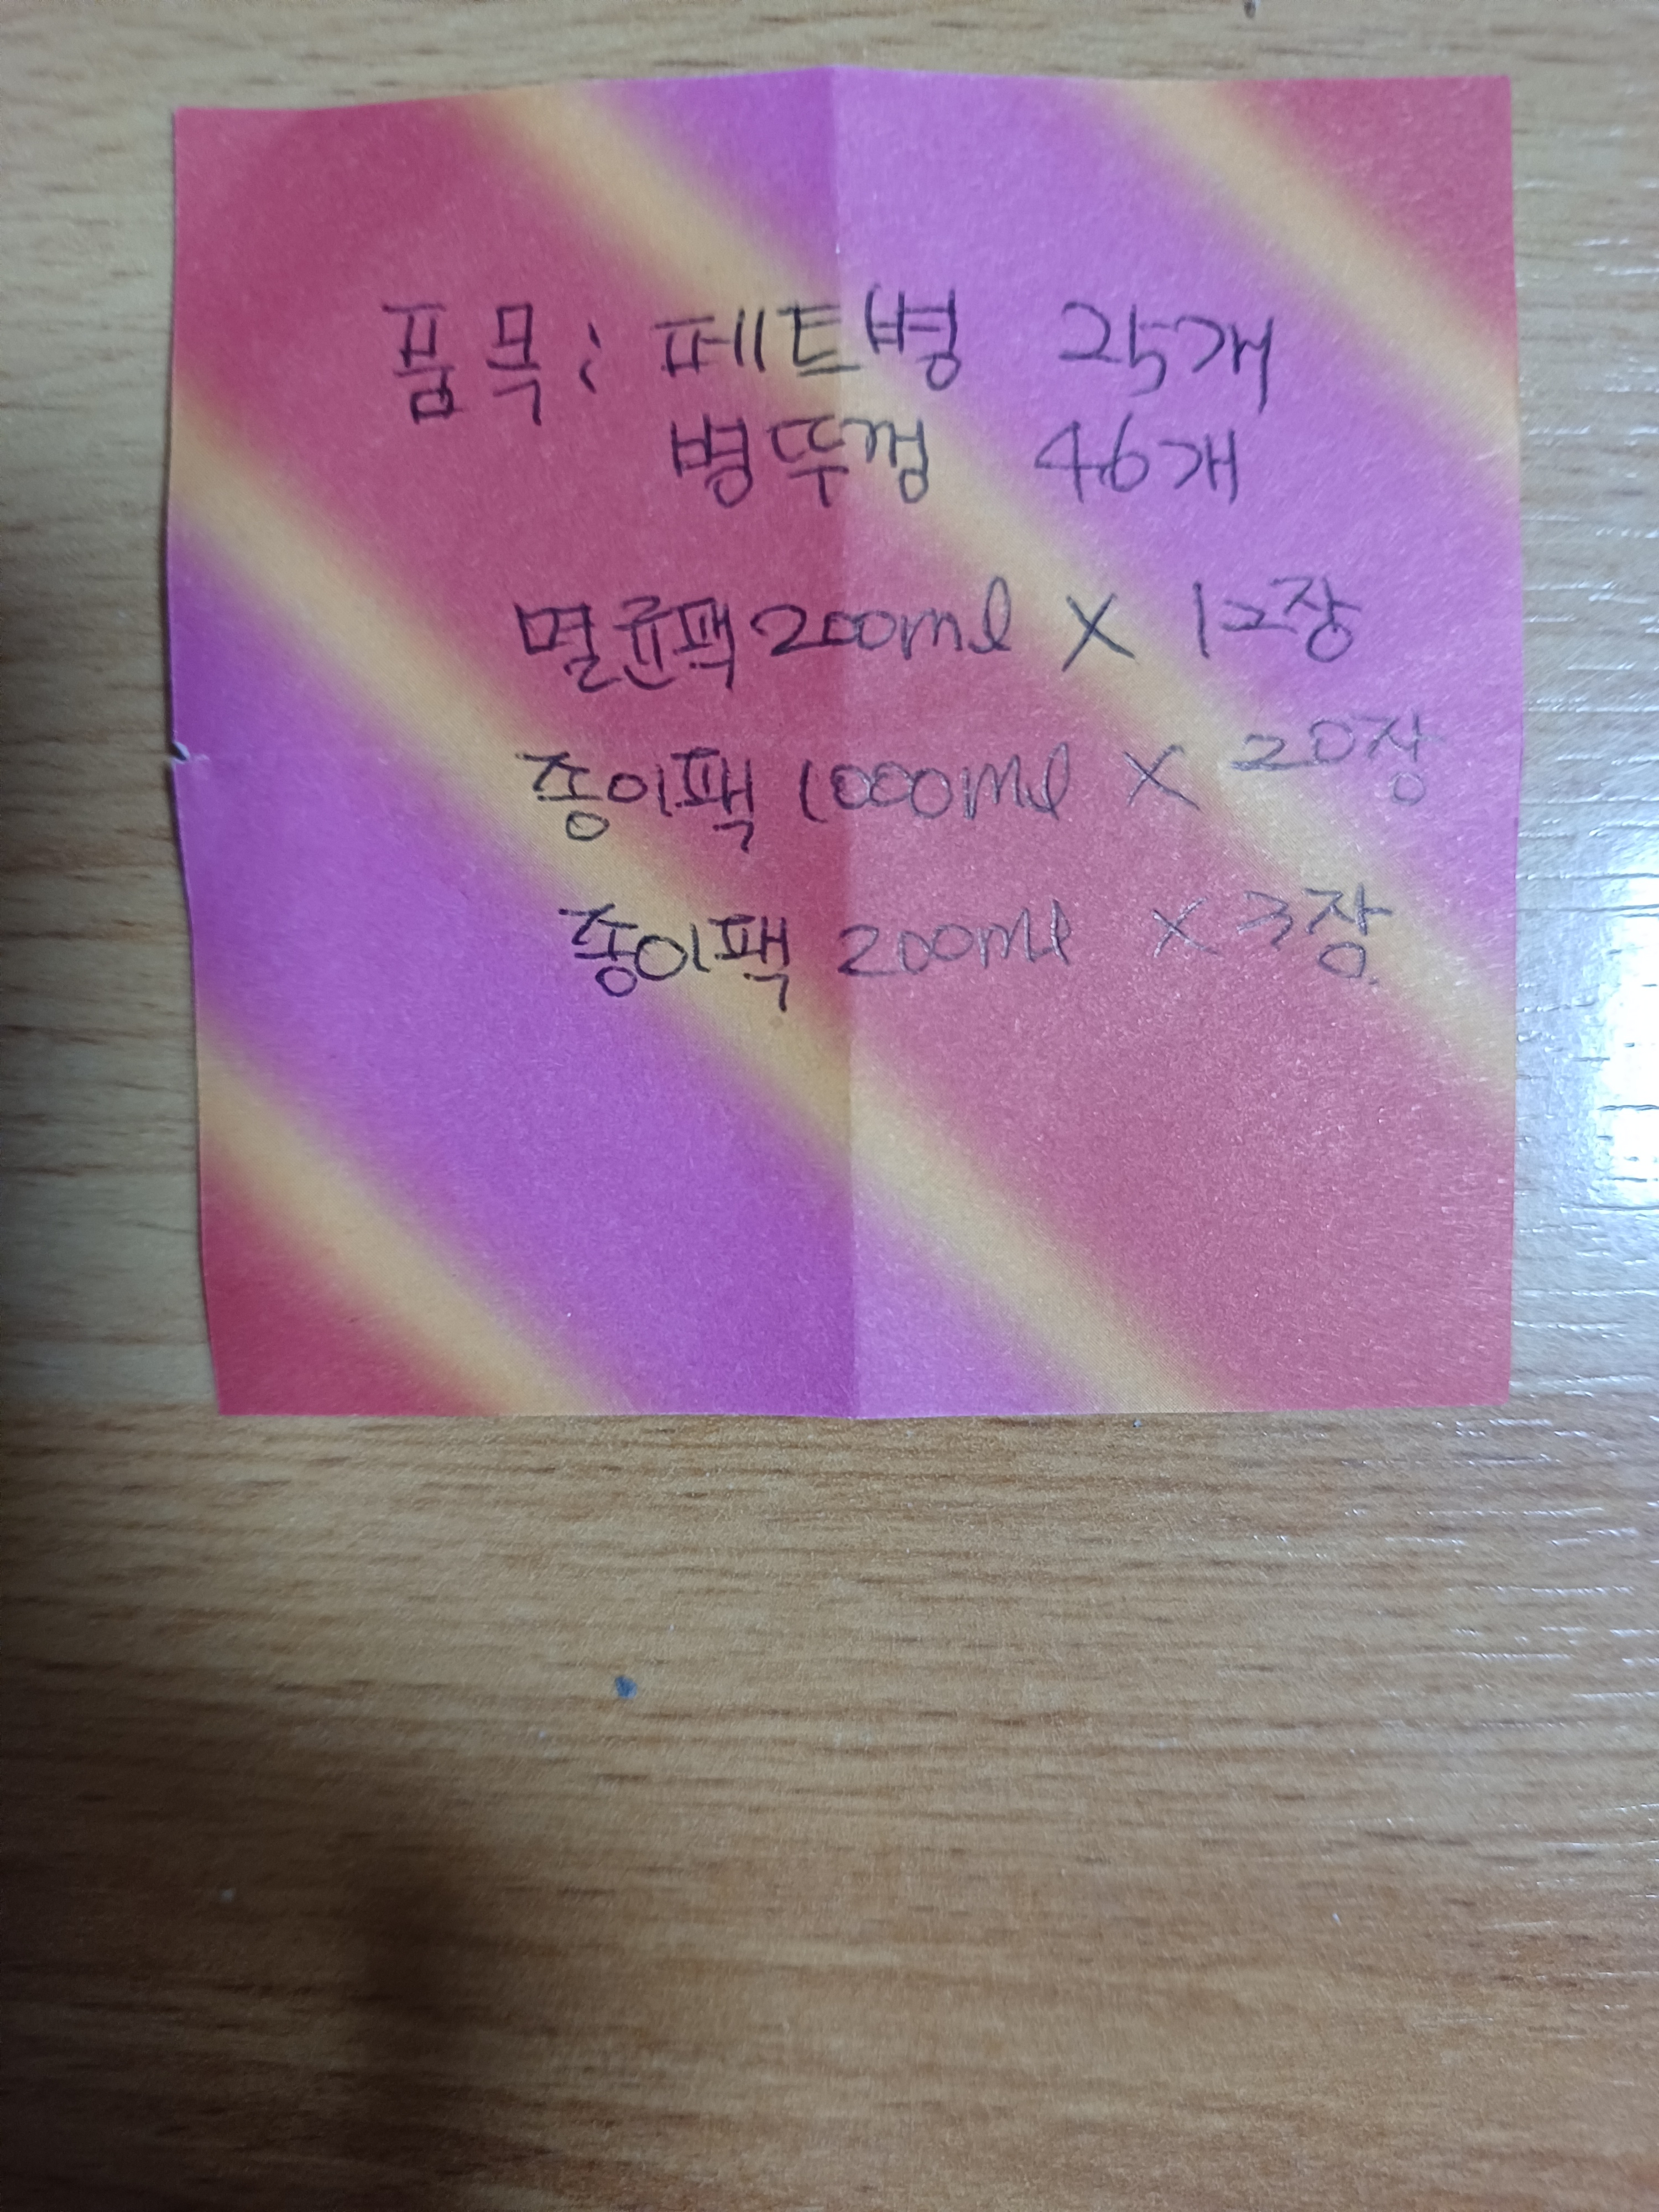 품목: 페트병 25개
병뚜껑 46개
멸균팩 200ml X 12장
종이팩 1000ml X 20장
종이팩 200ml X 3장